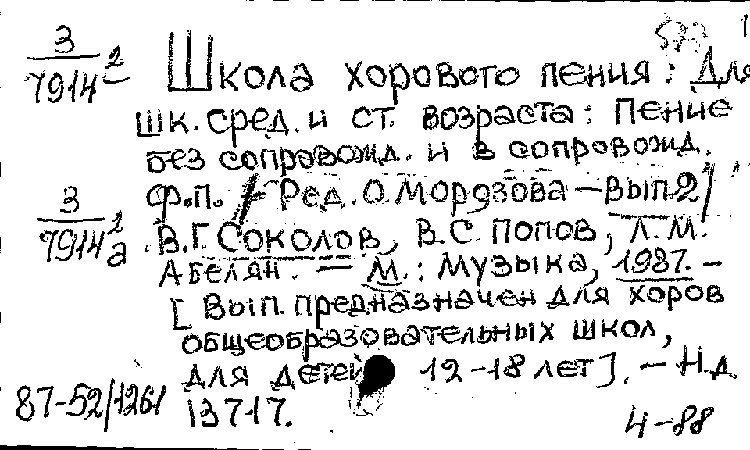 3/7914²
Школа хорового пения: Для
шк. сред. и ст. возраста: Пение
без сопровожд. и в сопровожд.
ф.п. / Ред. О. Мордзова – Вып. 2 /
3/7914² а
В.Г. Соколов, В.С. Попов, Л.М.
Абелян. – М.: Музыка, 1987. –
[Вып. предназначен для хоров
общеобразовательных школ,
для детей 12–18 лет]. – Н.д.
87-52/1261
13717.
4-88